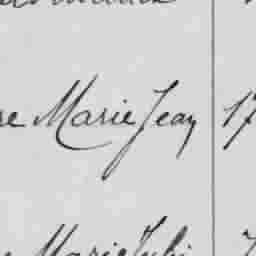 re Marie Jean 17
Marie Juli